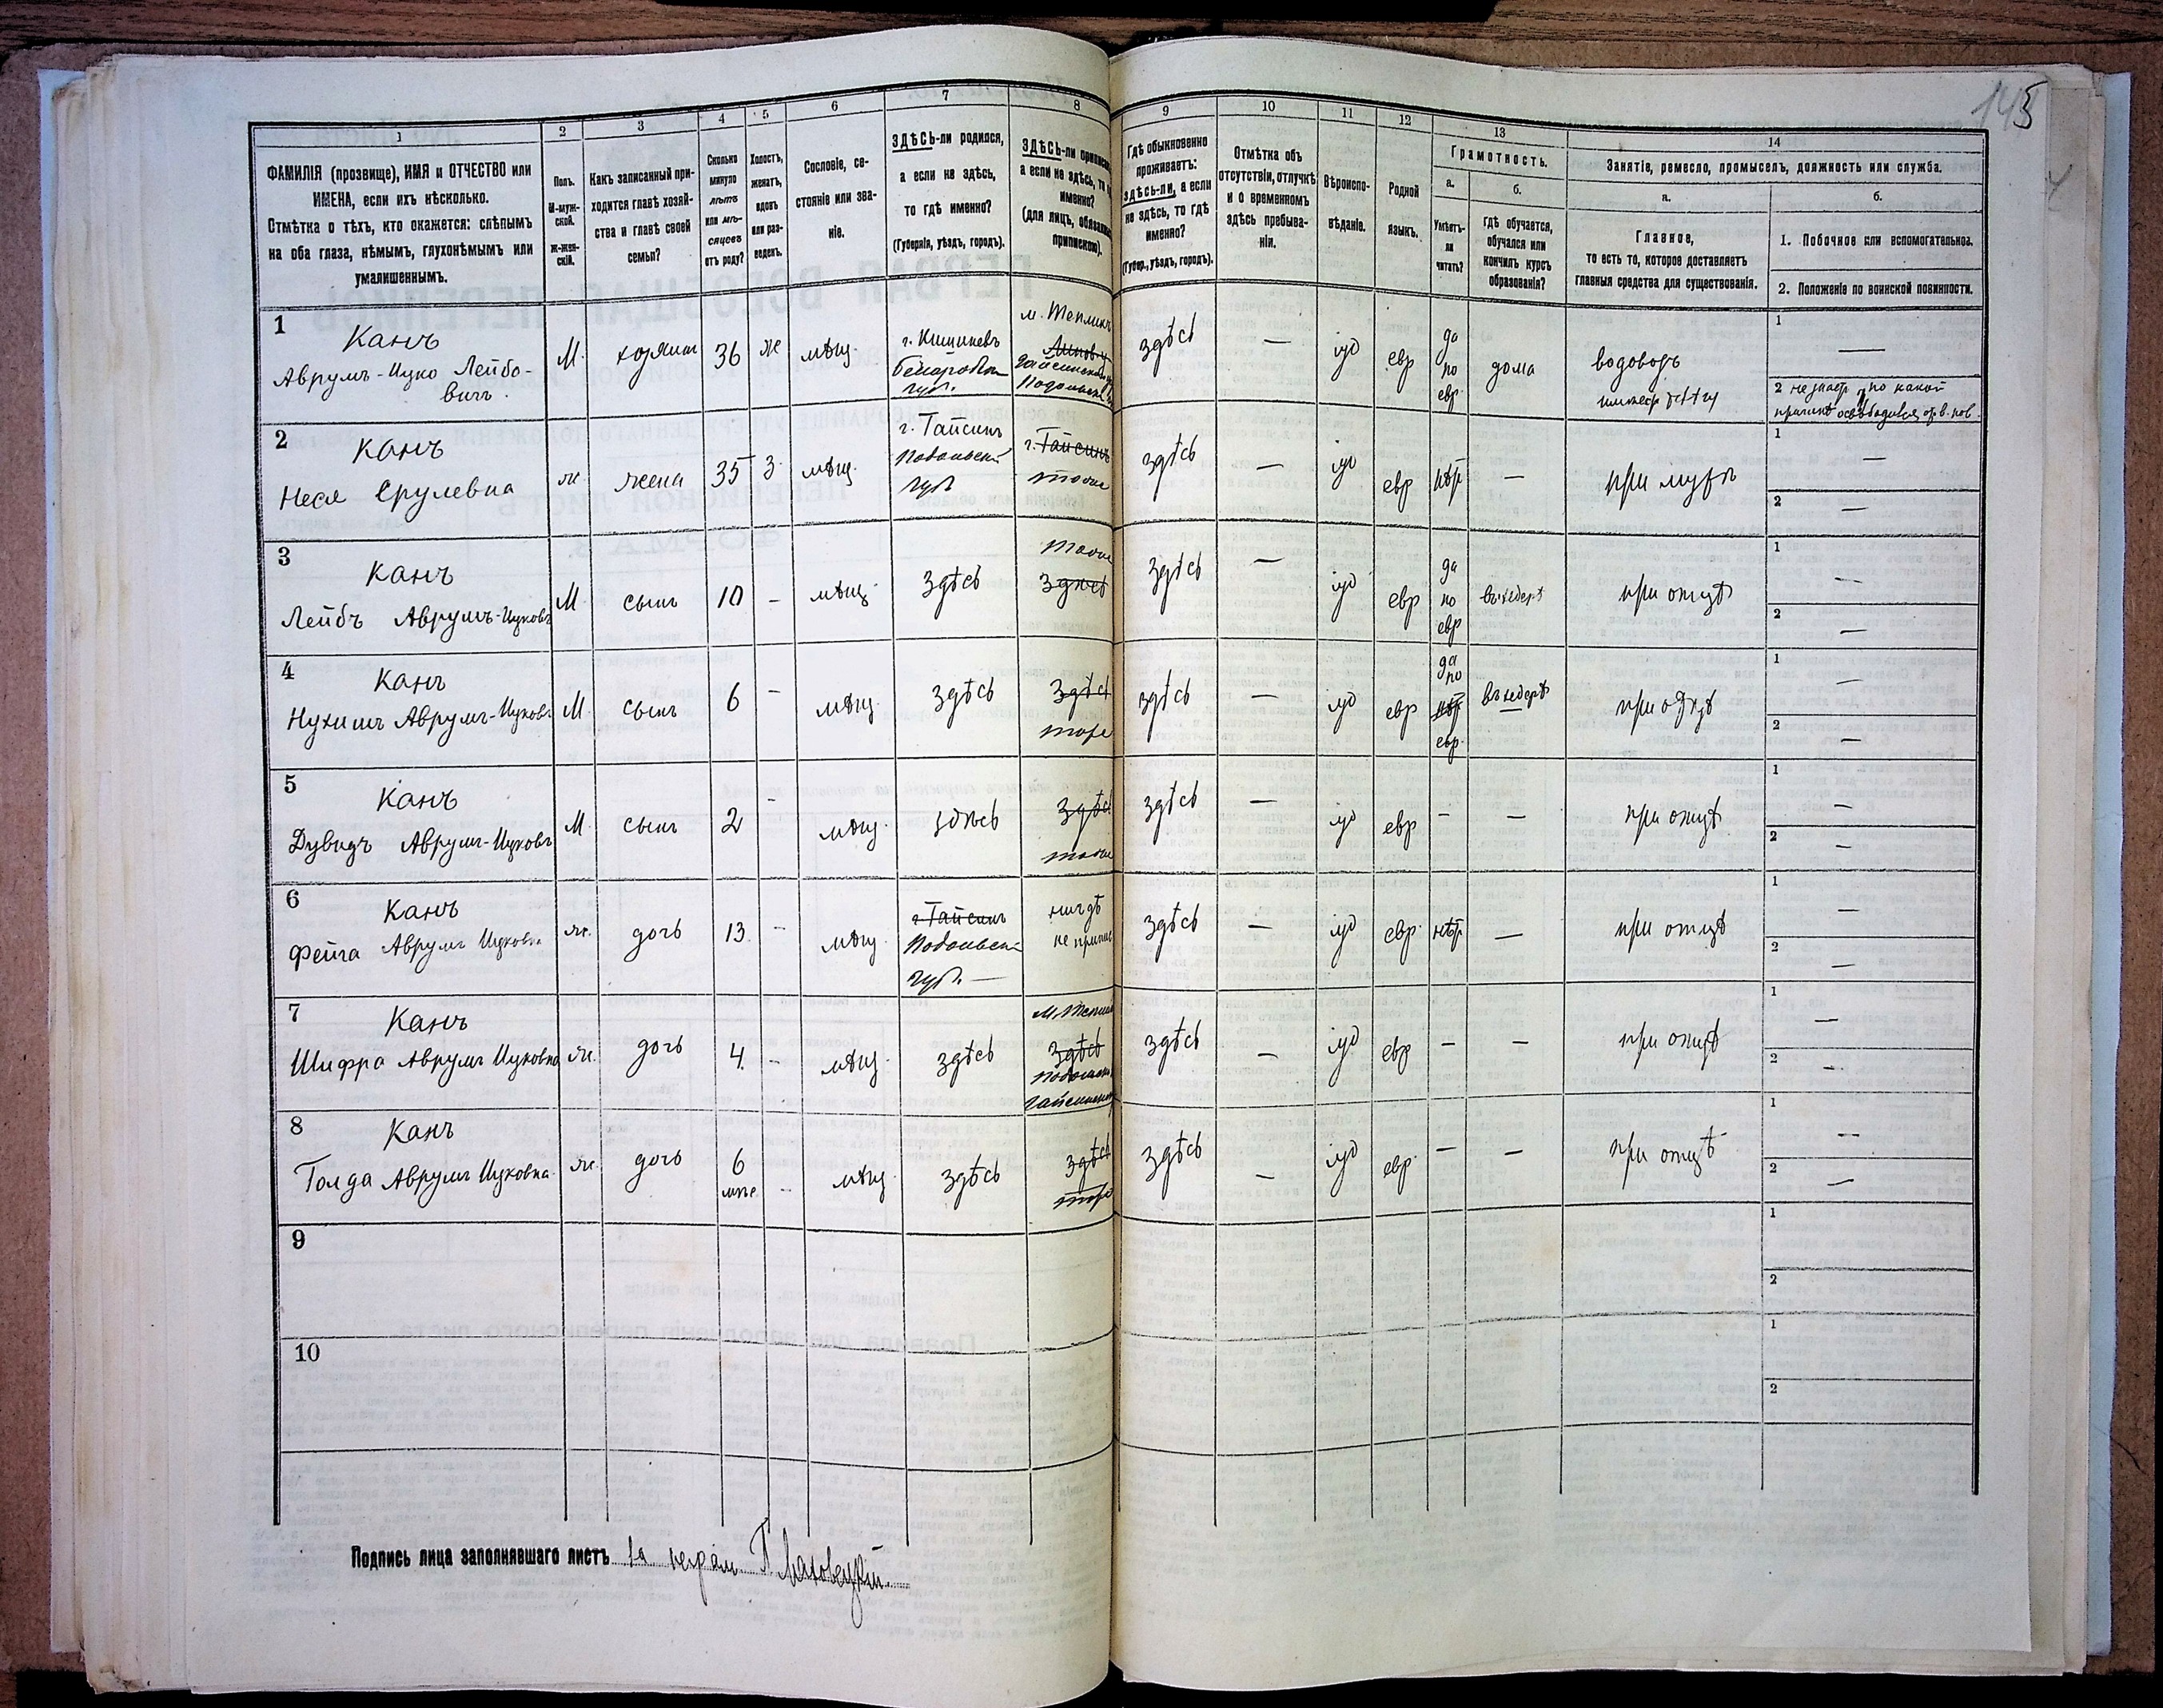 145
1
2
3
4
5
6
7
8
9
10
11
12
13
14
ФАМИЛІЯ (прозвище), ИМЯ и ОТЧЕСТВО или
ИМЕНА, если ихъ нѣсколько.
Отмѣтка о тѣхъ, кто окажется: слѣпымъ
на оба глаза, нѣмымъ, глухонѣмымъ или
умалишеннымъ.
Полъ.
М-муж-
ской.
Ж-жен-
скій.
Какъ записанный при-
ходится главѣ хозяй-
ства и главѣ своей
семьи?
Сколько
минуло
лѣтъ
или мѣ-
сяцевъ
отъ роду?
Холостъ,
женатъ,
вдовъ
или раз-
веденъ.
Сословіе, со-
стояніе или зва-
ніе.
ЗДѢСЬ-ли родился,
а если не здѣсь,
то гдѣ именно?
(Губернія, уѣздъ, городъ).
ЗДѢСЬ-ли
а если не здѣсь, то
именно?
(для лицъ,
припискою).
Гдѣ обыкновенно
проживаетъ:
здѣсь-ли, а если
не здѣсь, то гдѣ
именно?
(Губер., уѣздъ, городъ).
Отмѣтка объ
отсутствіи, отлучкѣ
и о временномъ
здѣсь пребыва-
ніи.
Вѣроиспо-
вѣданіе.
Родной
языкъ.
Грамотность.
а.
б.
Умѣетъ-
ли
читать?
Гдѣ обучается,
обучался или
кончилъ курсъ
образованія?
Занятіе, ремесло, промыселъ, должность или служба.
а.
б.
Главное,
то есть то, которое доставляетъ
главныя средства для существованія.
1. Побочное или вспомогательное.
2. Положеніе по воинской повинности.
1
Канъ
Аврумъ-Ицко Лейбо-
вичъ.
М.
хозяинъ
36
ж
мѣщ.
г. Кишиневъ
губ.
м. Тепликъ
здѣсь
—
іуд
евр
да
по
евр
дома
водовозъ
1
—
2 не знаетъ по какой
2
Канъ
Неся Срулевна
ж.
жена
35
З
мѣщ.
г. Гайсинъ
Подольской
губ
г. Гайсинъ
тоже
здѣсь
—
іуд
евр
нѣт
—
при мужѣ
1
—
2
—
3
Канъ
Лейбъ Аврумъ-Ицковъ
М
сынъ
10
–
мѣщ.
здѣсь
тоже
здѣсь
здѣсь
—
іуд
евр
да
по
евр
въ хедерѣ
при отцѣ
1
—
2
—
4
Канъ
Нухимъ Аврумъ-Ицковъ
М
сынъ
6
–
мѣщ.
здѣсь
здѣсь
тоже
здѣсь
—
іуд
евр
да
по
евр.
въ хедерѣ
при отцѣ
1
—
2
—
5
Канъ
Дувидъ Аврумъ-Ицковъ
М.
сынъ
2
–
мѣщ.
здѣсь
здѣсь
тоже
здѣсь
—
іуд
евр
–
—
при отцѣ
1
—
2
—
6
Канъ
Фейга Аврумъ Ицковна
ж.
дочь
13
–
мѣщ.
г. Гайсинъ
Подольской
губ. —
нигдѣ
не припис
здѣсь
—
іуд
евр.
нѣт
—
при отцѣ
1
—
2
—
7
Канъ
Шифра Аврумъ Ицковна
ж.
дочь
4
–
мѣщ.
здѣсь
здѣсь
здѣсь
—
іуд
евр
–
–
при отцѣ
1
—
2
–
8
Канъ
Голда Аврумъ Ицковна
ж.
дочь
6
мѣс.
–
мѣщ.
здѣсь
здѣсь
тоже
здѣсь
—
іуд
евр.
–
–
при отцѣ
1
—
2
—
9
1
2
10
1
2
Подпись лица заполнявшаго листъ за неграм.